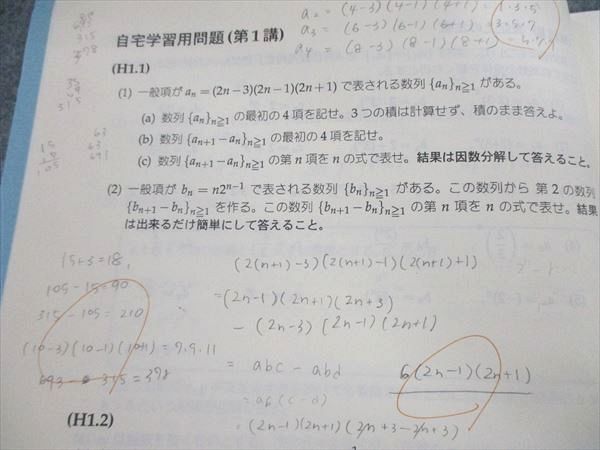 a₂ = (4-3)(4-1)(4+1) 1・3・5
a₃ = (6-3)(6-1)(6+1) = 3・5・7
a₄ = (8-3)(8-1)(8+1)
自宅学習用問題(第1講)
(H1.1)
(1) 一般項が aₙ = (2n − 3)(2n − 1)(2n + 1) で表される数列 {aₙ}ₙ≧₁ がある。
(a) 数列 {aₙ}ₙ≧₁ の最初の 4 項を記せ。3 つの積は計算せず、積のまま答えよ。
(b) 数列 {aₙ₊₁ − aₙ}ₙ≧₁ の最初の 4 項を記せ。
(c) 数列 {aₙ₊₁ − aₙ}ₙ≧₁ の第 n 項を n の式で表せ。結果は因数分解して答えること。
(2) 一般項が bₙ = n2ⁿ⁻¹ で表される数列 {bₙ}ₙ≧₁ がある。この数列から 第 2 の数列
{bₙ₊₁ − bₙ}ₙ≧₁ を作る。この数列 {bₙ₊₁ − bₙ}ₙ≧₁ の第 n 項を n の式で表せ。結果
は出来るだけ簡単にして答えること。
15+3=18,
105-15=90
315-105=210
(10-3)(10-1)(10+1)=7.9.11
693-315=378
(2(n+1)-3)(2(n+1)-1)(2(n+1)+1)
=(2n-1)(2n+1)(2n+3)
-(2n-3)(2n-1)(2n+1)
= abc - abd
= ab(c-d)
=(2n-1)(2n+1)(2n+3-2n+3)
6(2n-1)(2n+1)
(H1.2)